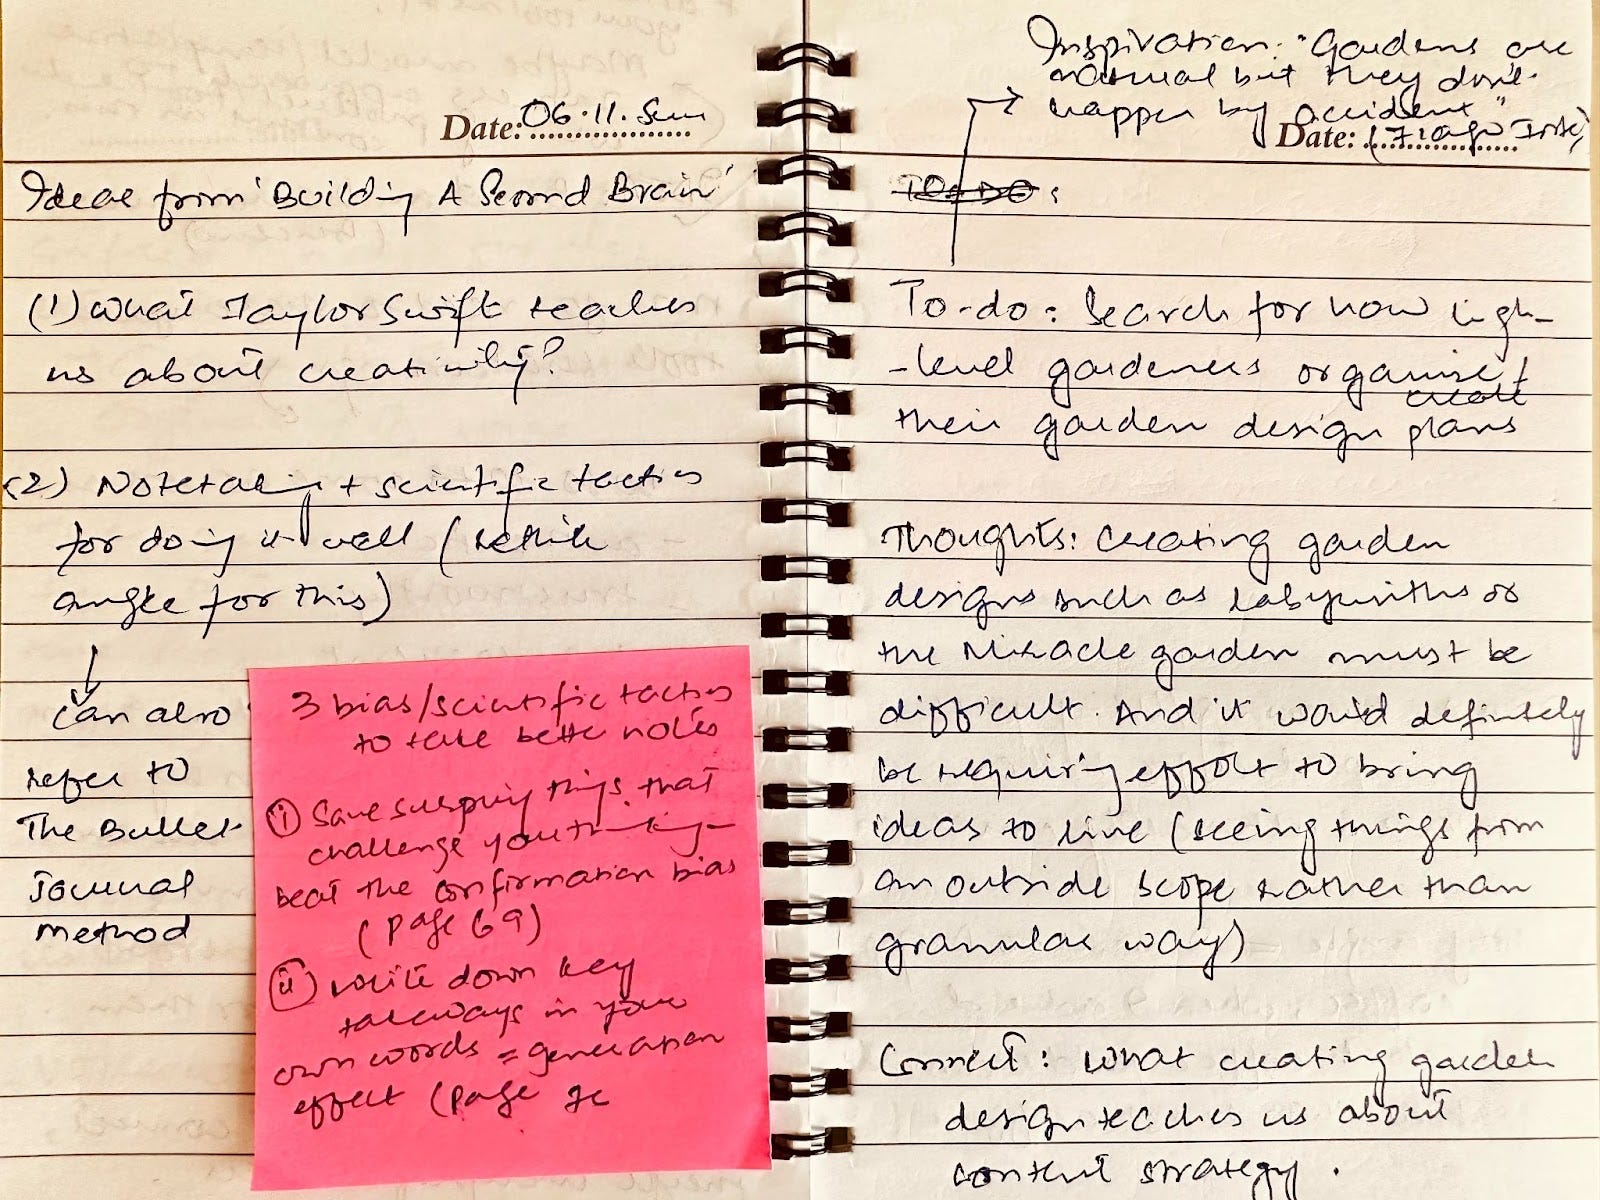 Date: 06.11. Sun
Ideas from 'Building A Second Brain'
(1) What Taylor Swift teaches
us about creativity?
(2) Notetaking + scientific tactics
for doing it well (rethink
angle for this)
↓
Can also
refer to
The Bullet
Journal
method
3 bias/scientific tactics
to take better notes
(i) Save surprising things that
challenge your thinking -
beat the confirmation bias
(Page 69)
(ii) write down key
takeaways in your
own words = generation
effect (Page
Inspiration: "Gardens are
natural but they don't
happen by accident"
Date: (Tiago Forte)
TO-DO:
To-do: Search for how high-
-level gardeners organise +
create
their garden design plans
Thoughts: Creating garden
designs such as labyrinths or
the Miracle garden must be
difficult. And it would definitely
be requiring effort to bring
ideas to live (seeing things from
an outside scope rather than
granular way)
Connect: What creating garden
design teaches us about
content strategy.